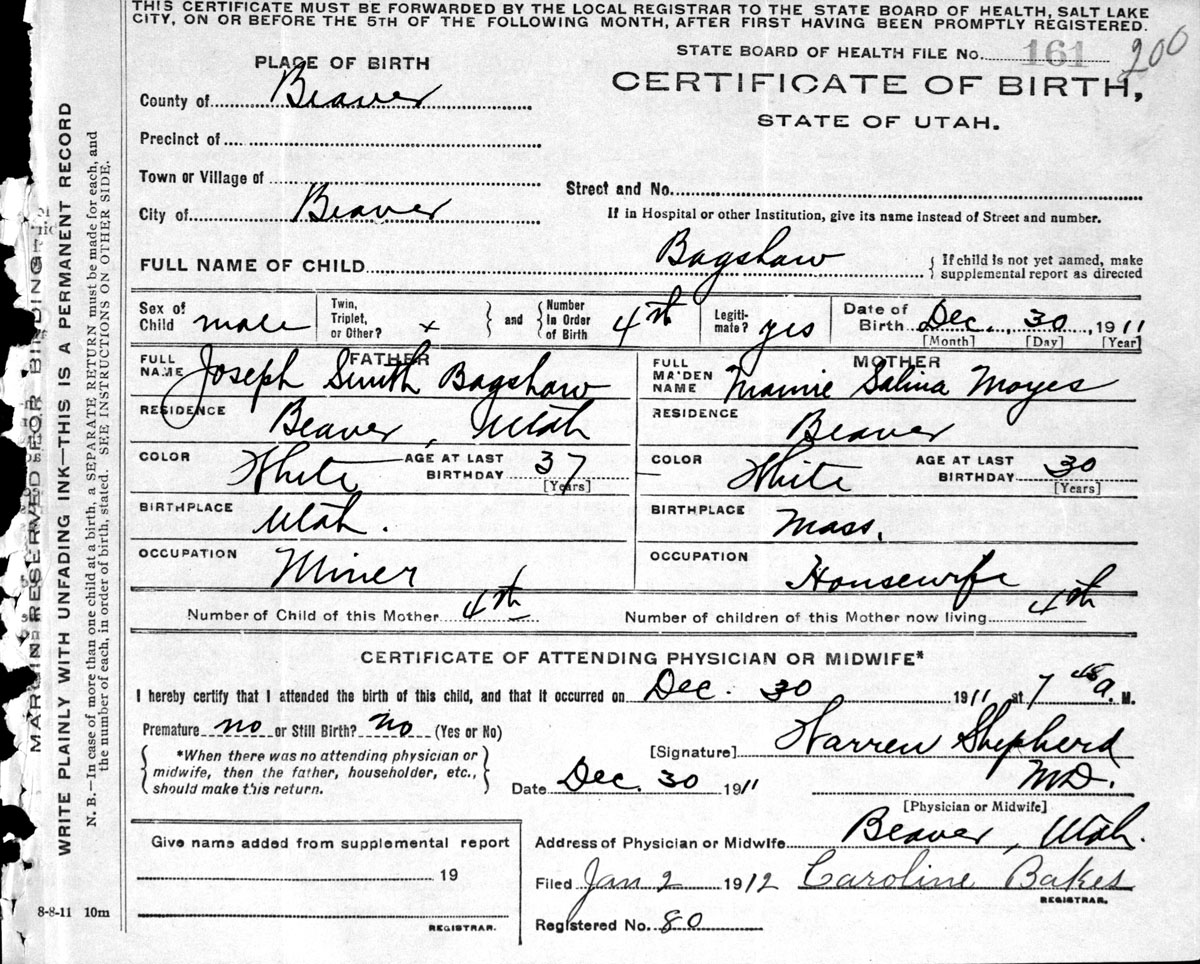 THIS CERTIFICATE MUST BE FORWARDED BY THE LOCAL REGISTRAR TO THE STATE BOARD OF HEALTH, SALT LAKE
CITY, ON OR BEFORE THE 5TH OF THE FOLLOWING MONTH, AFTER FIRST HAVING BEEN PROMPTLY REGISTERED.
STATE BOARD OF HEALTH FILE No. 161 200
PLACE OF BIRTH
CERTIFICATE OF BIRTH,
STATE OF UTAH.
County of Beaver
Precinct of
Town or Village of
Street and No.
City of Beaver
If in Hospital or other Institution, give its name instead of Street and number.
FULL NAME OF CHILD Bagshaw { If child is not yet named, make
supplemental report as directed
Sex of Child male Twin, Triplet, or Other? x } and { Number In Order of Birth 4th Legiti-mate? yes Date of Birth Dec. 30, 1911
[Month] [Day] [Year]
FATHER MOTHER
FULL NAME Joseph Smith Bagshaw FULL MAIDEN NAME Mamie Salina Moyes
RESIDENCE Beaver, Utah RESIDENCE Beaver
COLOR White AGE AT LAST BIRTHDAY 37 [Years] COLOR White AGE AT LAST BIRTHDAY 30 [Years]
BIRTHPLACE Utah. BIRTHPLACE Mass.
OCCUPATION Miner OCCUPATION Housewife
Number of Child of this Mother 4th Number of children of this Mother now living 4th
CERTIFICATE OF ATTENDING PHYSICIAN OR MIDWIFE*
I hereby certify that I attended the birth of this child, and that it occurred on Dec. 30 1911 at 7 45 a. M.
Premature no or Still Birth? No (Yes or No)
{ *When there was no attending physician or
midwife, then the father, householder, etc.,
should make this return. }
[Signature] Warren Shepherd
Date Dec. 30 1911 M.D.
[Physician or Midwife]
Address of Physician or Midwife Beaver, Utah.
Give name added from supplemental report
19
REGISTRAR.
Filed Jan 2 1912 Caroline Bakes
REGISTRAR.
Registered No. 80
8-8-11 10m
MARGIN RESERVED FOR BINDING
WRITE PLAINLY WITH UNFADING INK—THIS IS A PERMANENT RECORD
N. B.—In case of more than one child at a birth, a SEPARATE RETURN must be made for each, and
the number of each, in order of birth, stated. SEE INSTRUCTIONS ON OTHER SIDE.